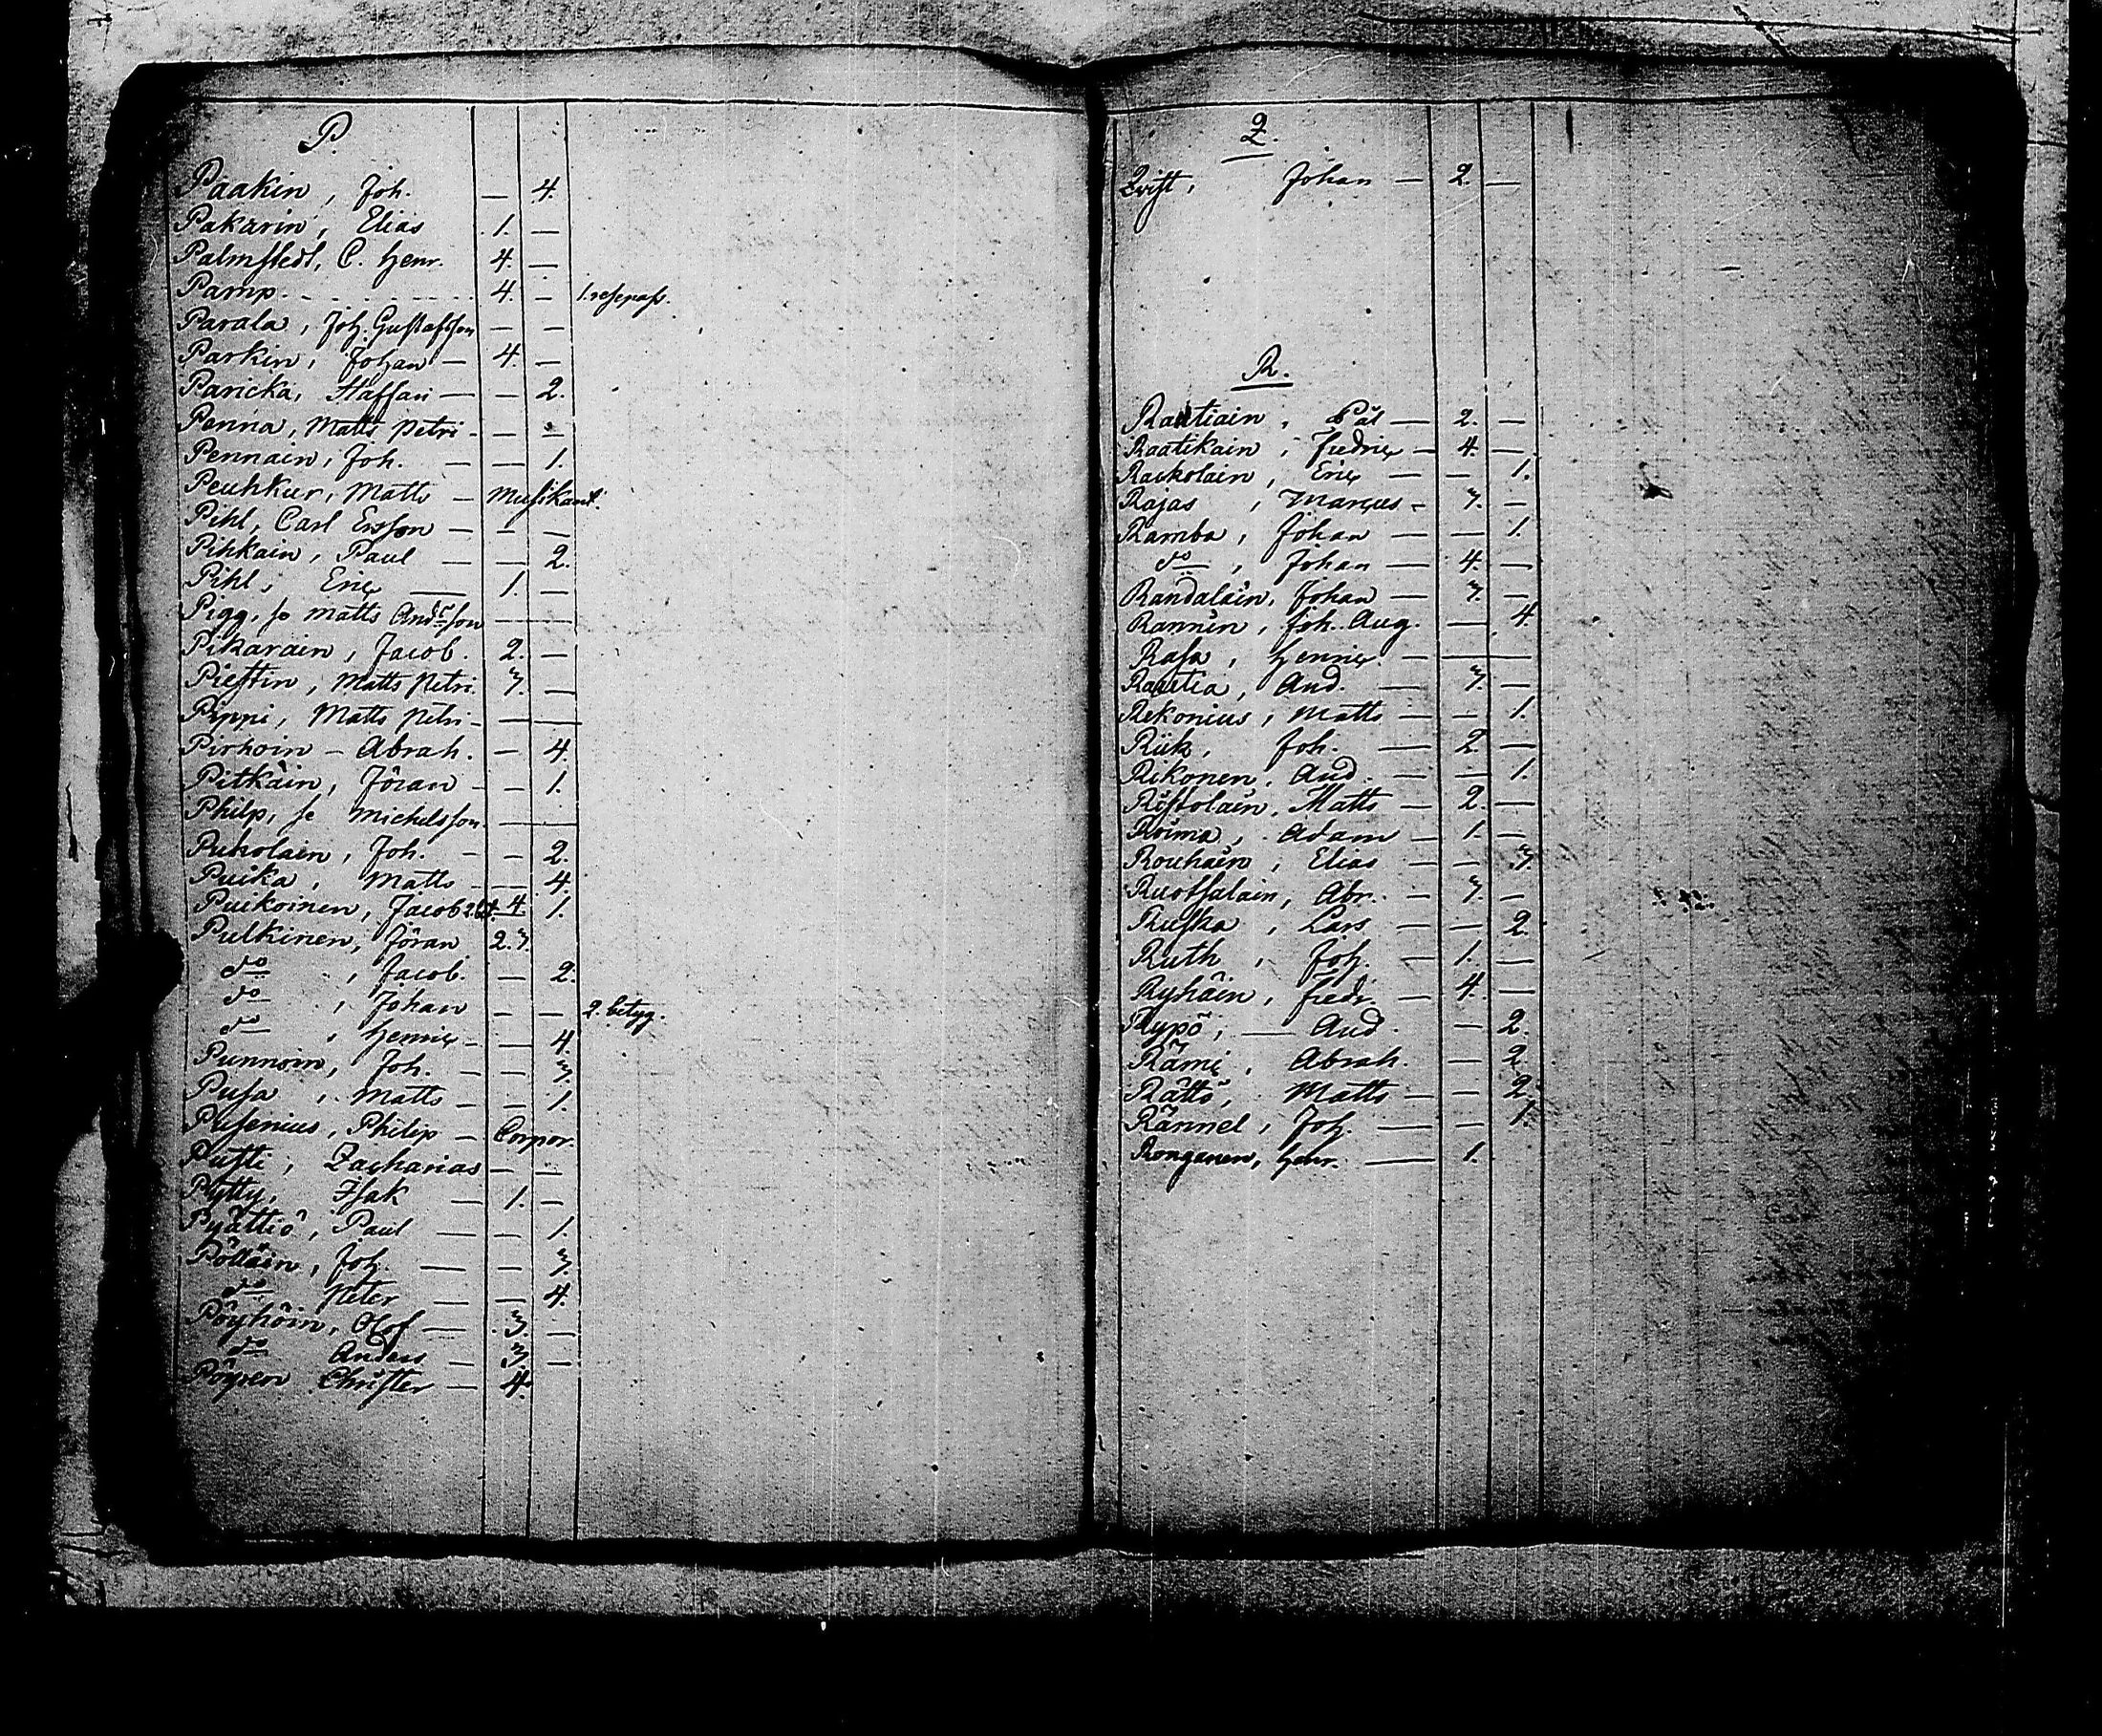 P.
Paakin, Joh. — 4.
Pakarin, Elias 1. —
Palmstedt, C. Henr. 4. —
Pamp. 4. — 1. resepass.
Parala, Joh. Gustafsson — —
Parkin, Johan — 4. —
Paricka, Staffan — — 2.
Penna, Matts Petri — — —
Pennain, Joh. — — 1.
Peuhkur, Matts — Musikant.
Pihl, Carl Ersson — — —
Pihkain, Paul — — 2.
Pihl, Eric — 1. —
Pigg, se Matts Andersson — —
Pikarain, Jacob. 2. —
Piestin, Matts Petri 3. —
Pippi, Matts Petri — — —
Pirhoin — Abrah. — 4.
Pitkäin, Jöran — — 1.
Philp, se Michelsson — —
Pukolain, Joh. — — 2.
Puika, Matts — — 4.
Puikoinen, Jacob 4. 1.
Pulkinen, Jöran 2. 3.
do, Jacob. — 2.
do, Johan — — 2. betyg.
do, Henric — — 4.
Punnoin, Joh. — — 3.
Pusa, Matts — — 1.
Pusenius, Philip — Corpor.
Pusti, Zacharias — —
Pytty, Isak — 1. —
Pyättiö, Paul — — 1.
Pölläin, Joh. — — 3.
do Peter — — 4.
Pöyhöin, Olof — 3. —
do Anders — 3. —
Pöyren Christer — 4.
Q.
Qvist, Johan — 2. —
R.
Rautiain, Pål — 2. —
Raatikain, Fredric — 4. —
Raikolain, Eric — — 1.
Rajas, Marcus — 3. —
Ramba, Johan — — 1.
do, Johan — 4. —
Randalain, Johan — 3. —
Rannin, Joh. Aug. — 4.
Rasa, Henric — — —
Rautia, And. — 3. —
Rekonius, Matts — — 1.
Riik, Joh. — 2 —
Rikonen, And. — — 1.
Ristolain, Matts — 2. —
Roima, Adam — 1. —
Rouhain, Elias — — 3.
Ruotsalain, Abr. — 3. —
Ruska, Lars — — 2.
Ruth, Joh. — 1. —
Ryhäin, Fredr. — 4. —
Rypö, — And. — 2.
Rämi, Abrah. — 2.
Rättö, Matts — — 2.
Rännel, Joh. — — 1.
Ronganen, Henr. — 1.